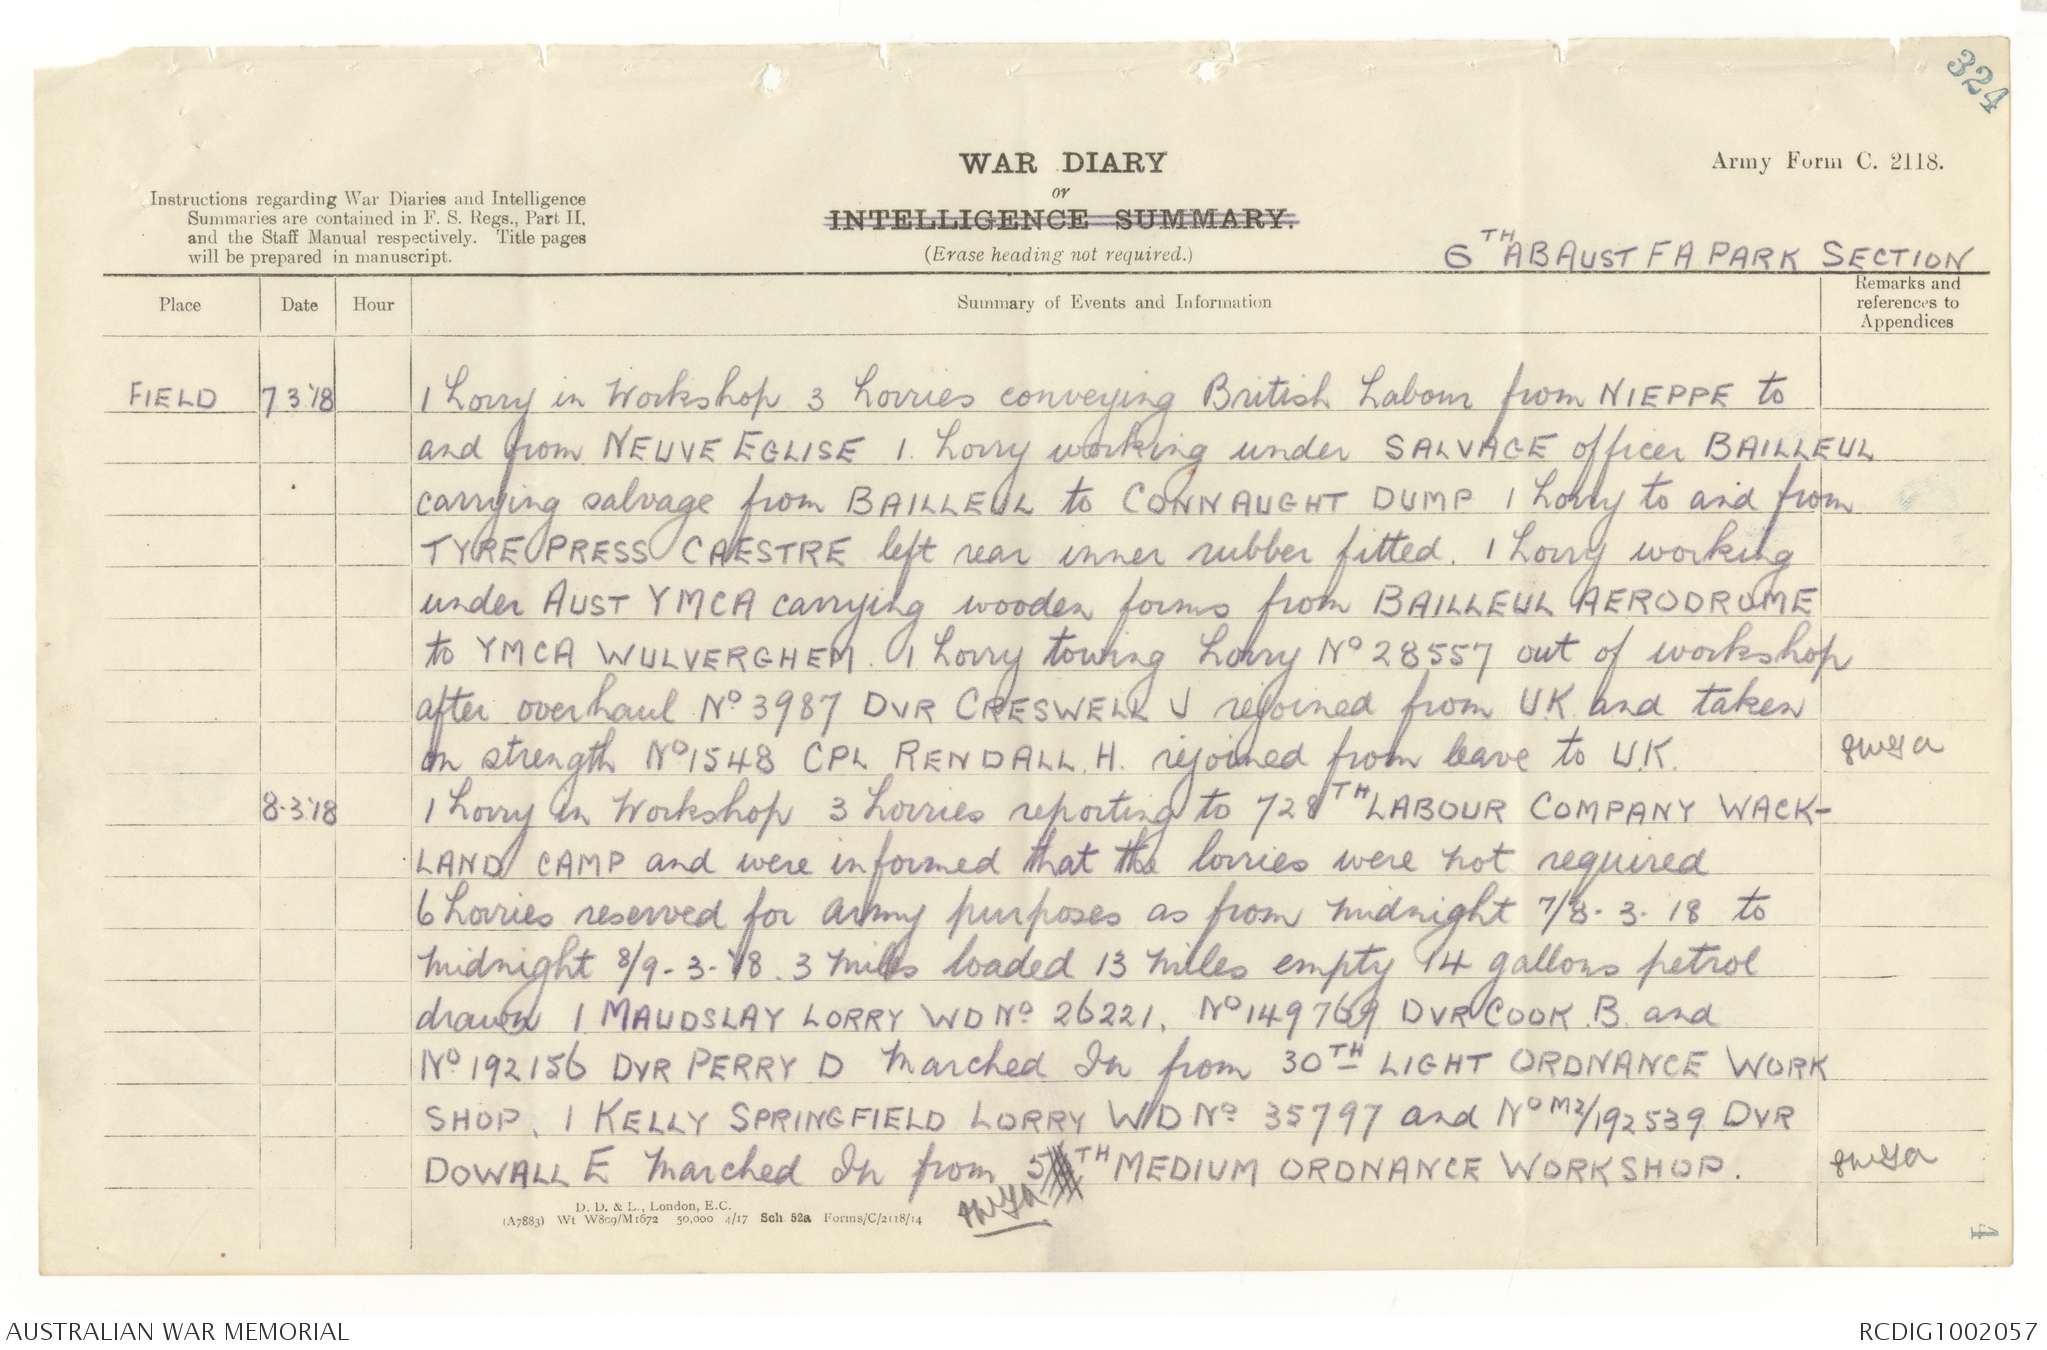 324
WAR DIARY
or
INTELLIGENCE SUMMARY.
(Erase heading not required.)
Army Form C. 2118.
Instructions regarding War Diaries and Intelligence
Summaries are contained in F. S. Regs., Part II,
and the Staff Manual respectively. Title pages
will be prepared in manuscript.
6TH AB AUST F A PARK SECTION
Place Date Hour Summary of Events and Information Remarks and references to Appendices
FIELD 7 3 '18 1 Lorry in Workshop 3 Lorries conveying British Labour from NIEPPE to
and from NEUVE EGLISE 1. Lorry working under SALVAGE officer BAILLEUL
carrying salvage from BAILLEUL to CONNAUGHT DUMP 1 Lorry to and from
TYRE PRESS CAESTRE left rear inner rubber fitted. 1 Lorry working
under AUST YMCA carrying wooden forms from BAILLEUL AERODROME
to YMCA WULVERGHEM. 1 Lorry towing Lorry No 28557 out of workshop
after overhaul No 3987 DVR CRESWELL J rejoined from U.K. and taken
on strength No 1548 CPL RENDALL. H. rejoined from leave to U.K.
8.3.'18 1 Lorry in Workshop 3 Lorries reporting to 728TH LABOUR COMPANY WACK-
LAND CAMP and were informed that the lorries were not required
6 Lorries reserved for army purposes as from midnight 7/8. 3. 18 to
midnight 8/9. 3. '18. 3 miles loaded 13 miles empty 14 gallons petrol
drawn 1 MAUDSLAY LORRY WD No. 26221. No 149769 DVR COOK. B. and
No 192156 DVR PERRY D Marched In from 30TH LIGHT ORDNANCE WORK
SHOP. 1 KELLY SPRINGFIELD LORRY WD No. 35797 and No M2/192539 DVR
DOWALL E Marched In from 5TH MEDIUM ORDNANCE WORKSHOP.
D. D. & L., London, E.C.
(A7883) Wt W809/M1672 50,000 4/17 Sch 52a Forms/C/2118/14
4
AUSTRALIAN WAR MEMORIAL
RCDIG1002057